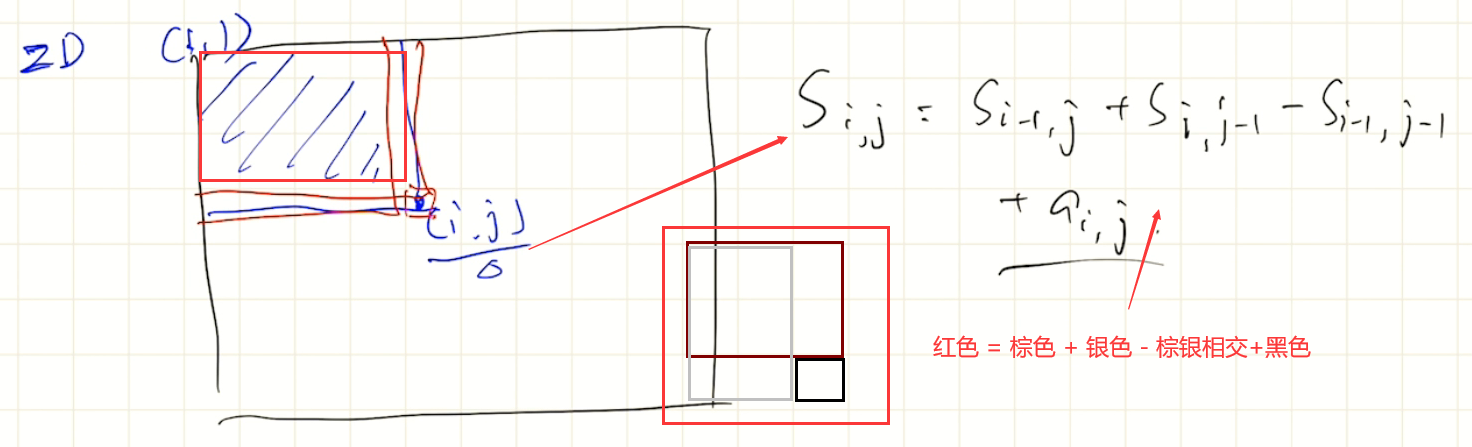 2D
(1,1)
S i,j = S i-1,j + S i,j-1 - S i-1,j-1
+ a i,j
(i,j)
红色 = 棕色 + 银色 - 棕银相交+黑色